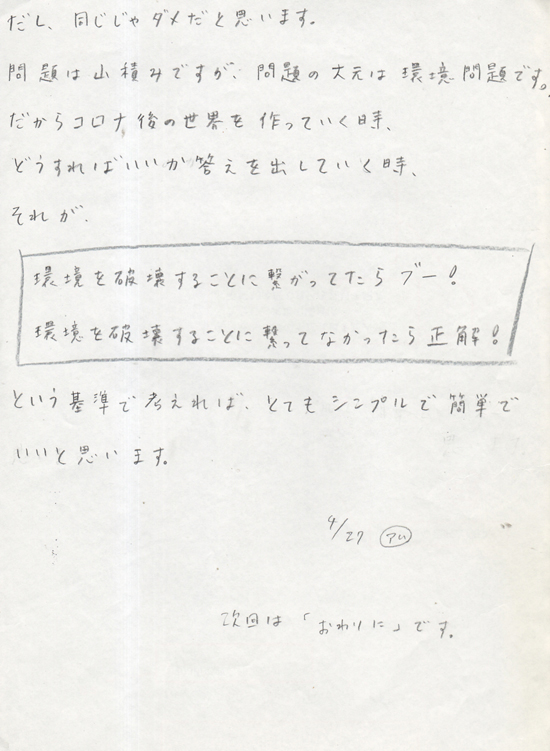 だし、同じじゃダメだと思います。
問題は山積みですが、問題の大元は環境問題です。
だからコロナ後の世界を作っていく時、
どうすればいいか答えを出していく時、
それが、
環境を破壊することに繋がってたらブー!
環境を破壊することに繋ってなかったら正解!
という基準で考えれば、とてもシンプルで簡単で
いいと思います。
4/27
次回は「おわりに」です。